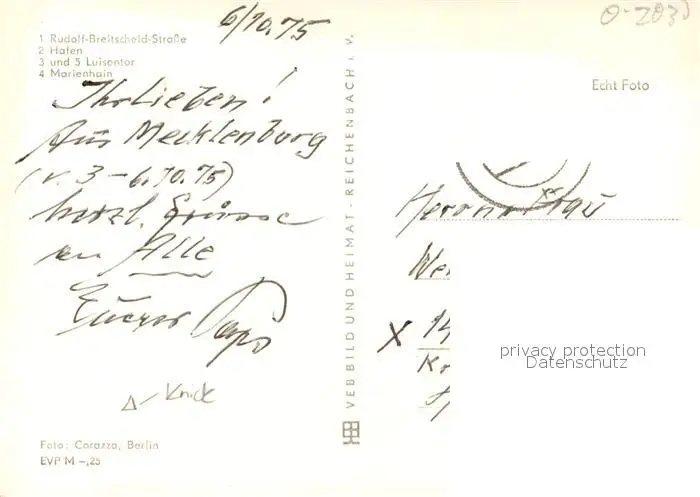 6/10.75
1 Rudolf-Breitscheid-Straße
2 Hafen
3 und 5 Luisentor
4 Marienhain
Ihr Lieben!
Aus Mecklenburg
(v. 3-6.10.75)
herzl. Grüsse
an Alle
Euer Paps
Knick
Foto: Corazza, Berlin
EVP M -,25
VEB BILD UND HEIMAT · REICHENBACH i. V.
Echt Foto
Herrn + Frau
We
X 14
privacy protection
Datenschutz